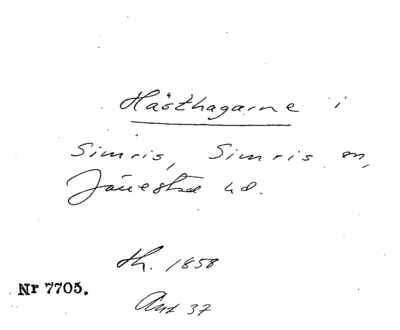 Hästhagarne i
Simris, Simris sn,
Järrestad hd.
th. 1858
Nr 7705.
Ant 37